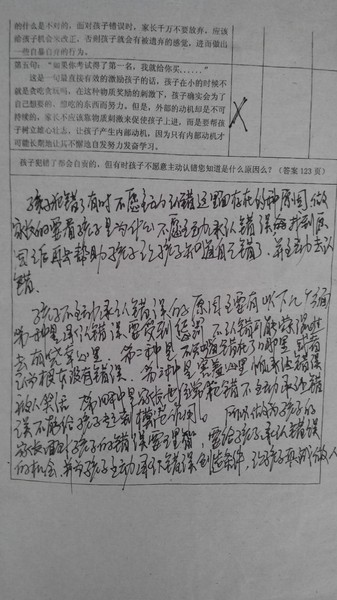 的什么是不对的。面对孩子错误时，家长千万不要放弃，应该
给孩子机会来改正，否则孩子就会有被遗弃的感觉，进而做出
一些自暴自弃的行为。
第五句：“如果你考试得了第一名，我就给你买……”
这是一句最直接有效的激励孩子的话，孩子在小的时候不
就是贪吃贪玩吗，在这种物质奖励的刺激下，孩子确实会为了
自己想要的、想吃的东西而努力。但是，外部的动机却是不可
持续的，家长不应该靠物质刺激来促使孩子上进，而是要帮孩
子树立雄心壮志，让孩子产生内部动机，因为只有内部动机才
可能长期地让其不懈地自发努力奋发学习。
孩子犯错了都会自责的，但有时孩子不愿意主动认错您知道是什么原因么？（答案 123 页）
孩子犯错了有时不愿主动认错这里面存在的种原因，做
家长的要看孩子是为什么不愿主动承认错误 找到原
因以后再去帮助孩子让孩子知道自己错了，并主动去认
错。
孩子不主动承认错误的原因主要有以下几个方面
第一种是因认错误要受到惩罚，不认错可能蒙混过
去 心里。第二种是不知道错在了哪里 或者
认为根本没有错误。第三种是 心里 怕承认错误
被人笑话 第四种是家长 犯错不主动承认错
误不能给孩子起到模范作用。所以做为孩子的
家长 孩子的错误要 ，要给孩子承认错误
的机会，并为孩子主动承认错误创造条件，让孩子真诚做人